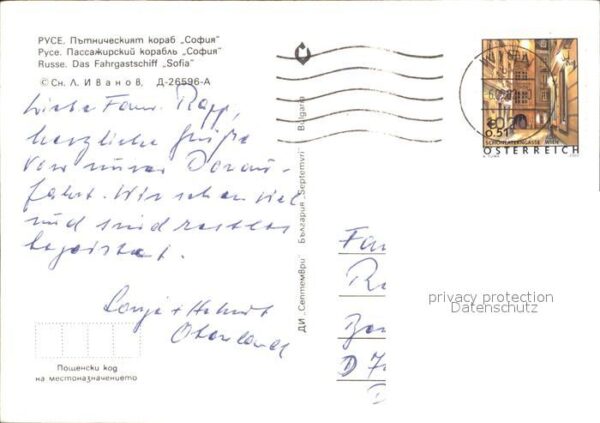 РУСЕ. Пътническият кораб „София"
Русе. Пассажирский корабль „София"
Russe. Das Fahrgastschiff „Sofia"
© Сн. Л. Иванов, Д-26596-А
Liebe Fam. Rapp,
herzliche Grüße
von unserer Donau-
fahrt. Wir sehen viel
und sind restlos
begeistert.
Sonja + Helmut
Пощенски код
на местоназначението
ДИ „Септември" България „Septemvri" Bulgaria
WIEN
€ 0,51
SCHÖNLATERNGASSE WIEN
ÖSTERREICH
Fam
D 7
D
privacy protection
Datenschutz